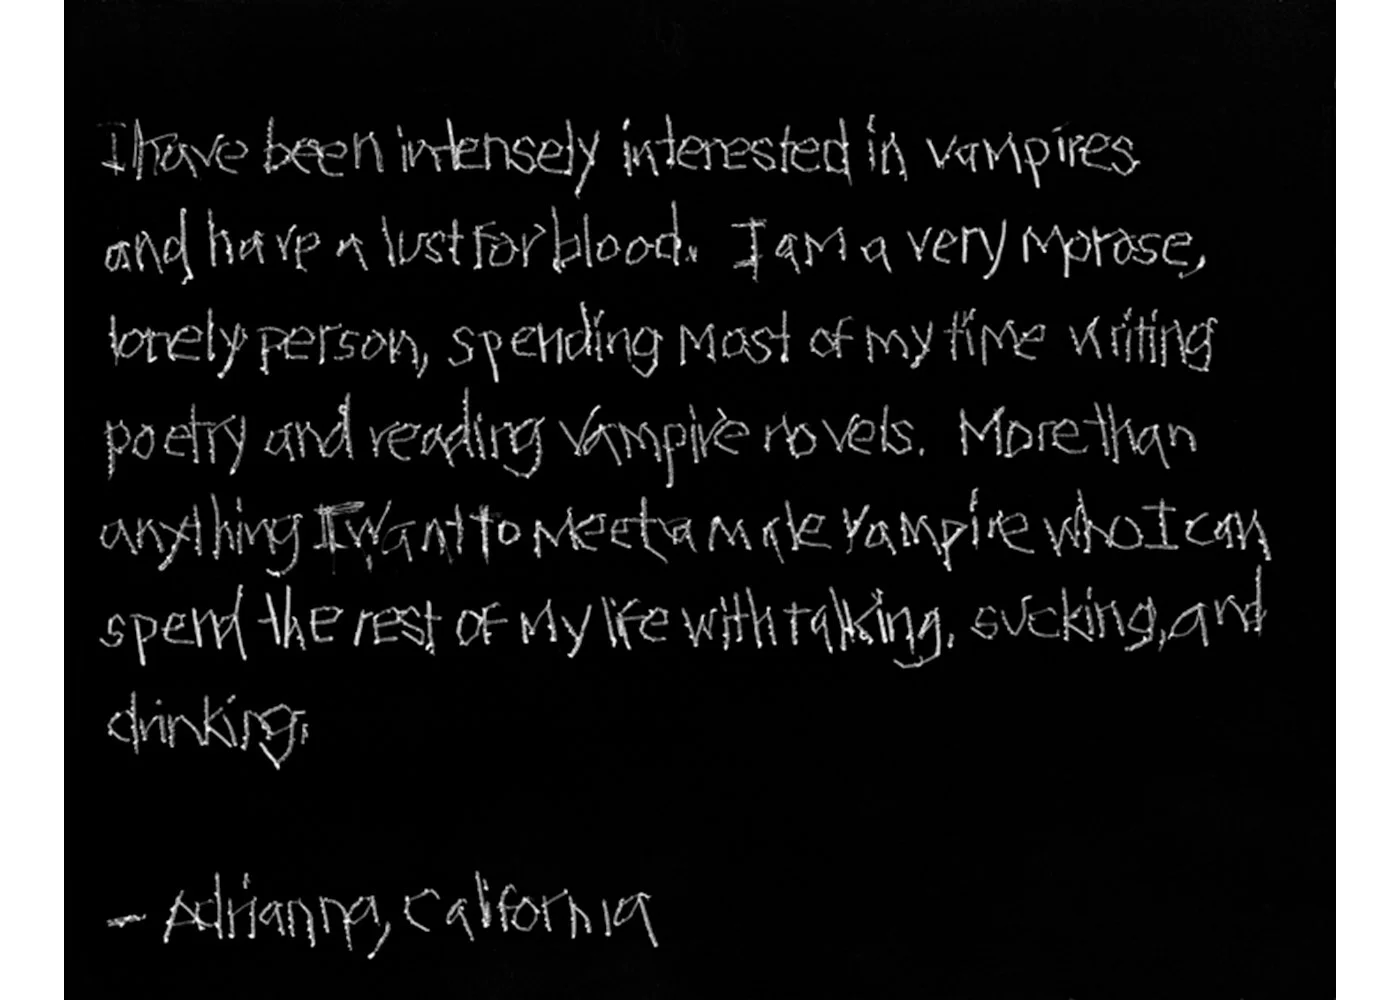 I have been intensely interested in vampires
and have a lust for blood. I am a very morose,
lonely person, spending most of my time writing
poetry and reading vampire novels. More than
anything I want to meet a male vampire who I can
spend the rest of my life with talking, sucking, and
drinking.
- Adrianna, California